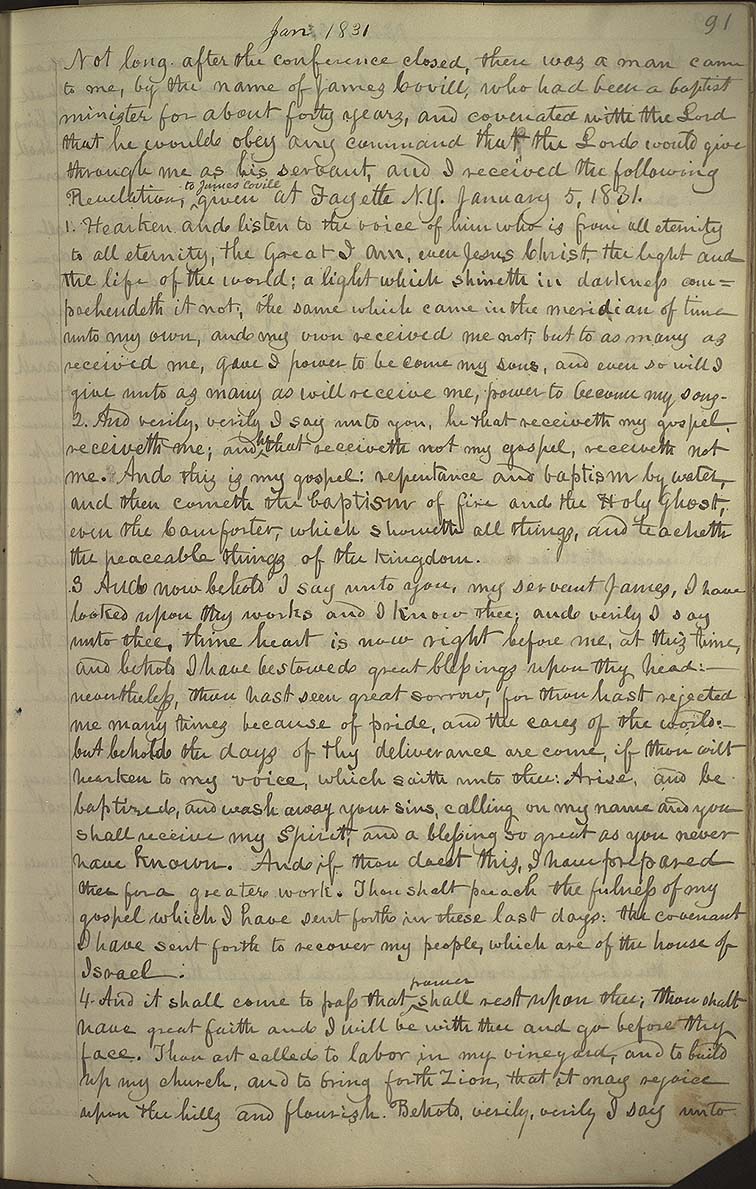 Jan 1831
91
Not long after the conference closed, there was a man came
to me, by the name of James Covill, who had been a baptist
minister for about forty years, and covenated with the Lord
that he would obey any command that the Lord would give
through me as his servant, and I received the following
to James Covill
Revelation, given at Fayette N.Y. January 5, 1831.
1. Hearken and listen to the voice of him who is from all eternity
to all eternity, the Great I Am, even Jesus Christ, the light and
the life of the world; a light which shineth in darkness com=
prehendeth it not, the same which came in the meridian of time
unto my own, and my own received me not; but to as many as
received me, gave I power to be come my sons, and even so will I
give unto as many as will receive me, power to become my sons-
2. And verily, verily I say unto you, he that receiveth my gospel,
receiveth me; and he that receiveth not my gospel, receiveth not
me. And this is my gospel: repentance and baptism by water,
and then cometh the baptism of fire and the Holy Ghost,
even the Comforter, which showeth all things, and teacheth
the peaceable things of the kingdom.
3 And now behold I say unto you, my servant James, I have
looked upon thy works and I know thee; and verily I say
unto thee, thine heart is now right before me, at this time,
and behold I have bestowed great blessings upon thy head:-
nevertheless, thou hast seen great sorrow, for thou hast rejected
me many times because of pride, and the cares of the world:-
but behold the days of thy deliverance are come, if thou wilt
hearken to my voice, which saith unto thee: Arise, and be
baptized, and wash away your sins, calling on my name and you
shall receive my Spirit, and a blessing so great as you never
have known. And if thou doest this, I have prepared
thee for a greater work. Thou shalt preach the fulness of my
gospel which I have sent forth in these last days: the covenant
I have sent forth to recover my people, which are of the house of
Israel:
power
4. And it shall come to pass that shall rest upon thee; thou shalt
have great faith and I will be with thee and go before thy
face. Thou art called to labor in my vineyard, and to build
up my church, and to bring forth Zion, that it may rejoice
upon the hills and flourish. Behold, verily, verily I say unto